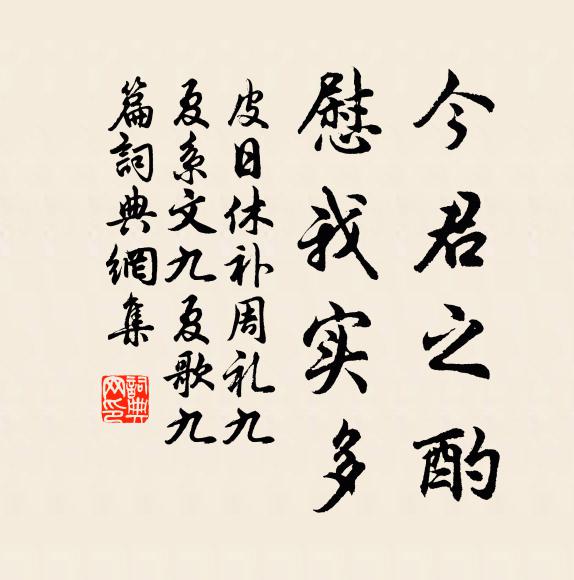 今君之酌
慰我实多
皮日休补周礼九
夏系文九夏歌九
篇詞典網集
詞典网印